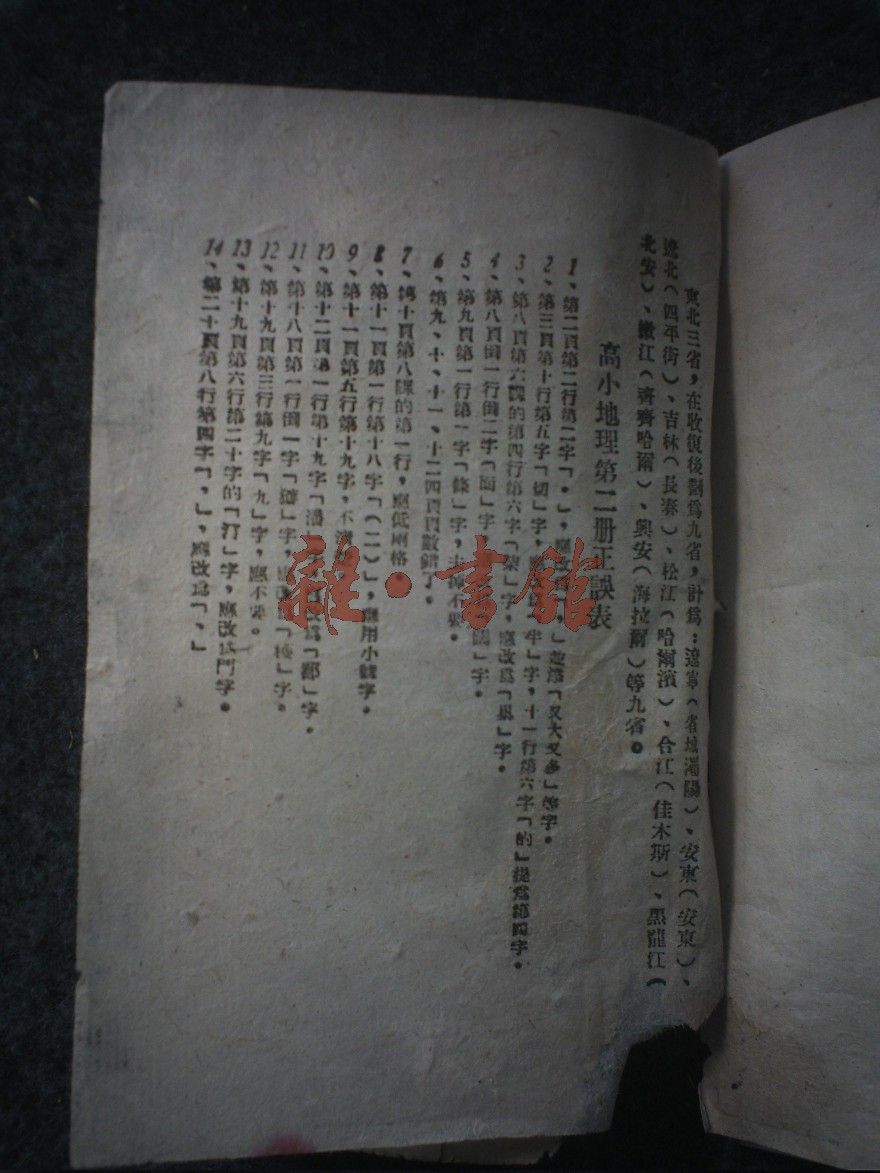 東北三省，在收復後劃爲九省，計爲：遼寧（省城瀋陽）、安東（安東）、
遼北（四平街）、吉林（長春）、松江（哈爾濱）、合江（佳木斯）、黑龍江（
北安）、嫩江（齊齊哈爾）、興安（海拉爾）等九省。
高小地理第二册正誤表
1、第二頁第二行第二字「，」，應改「又大又多」
2、第三頁第十行第五字「切」字，「牢」字，十一行第六字「的」提爲第四字。
3、第八頁第六課的第四行第六字「梨」字，應改爲「巢」字。
4、第八頁倒一行倒二字「面」字
5、第九頁第一行第一字「條」字，去掉不要。
6、第九、十、十一、十二四頁頁數錯了。
7、第十頁第八課的第一行，應低兩格。
8、第十一頁第一行第十八字「（二）」，應用小號字。
9、第十一頁第五行第十九字，不
10、第十二頁第一行第十九字「潘」改爲「鄱」字。
11、第十八頁第一行倒一字字，字。
12、第十九頁第三行第九字「九」字，應不要。
13、第十九頁第六行第二十字的「汀」字，應改爲門字。
14、第二十頁第八行第四字「，」，應改爲「、」
雜·書館